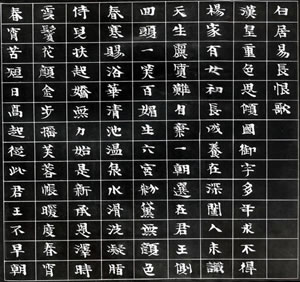 白居易長恨歌
漢皇重色思傾國御宇多年求不得
楊家有女初長成養在深閨人未識
天生麗質難自棄一朝選在君王側
回頭一笑百媚生六宮粉黛無顏色
春寒賜浴華清池溫泉水滑洗凝脂
侍兒扶起嬌無力始是新承恩澤時
雲鬢花顏金步搖芙蓉帳暖度春宵
春宵苦短日高起從此君王不早朝